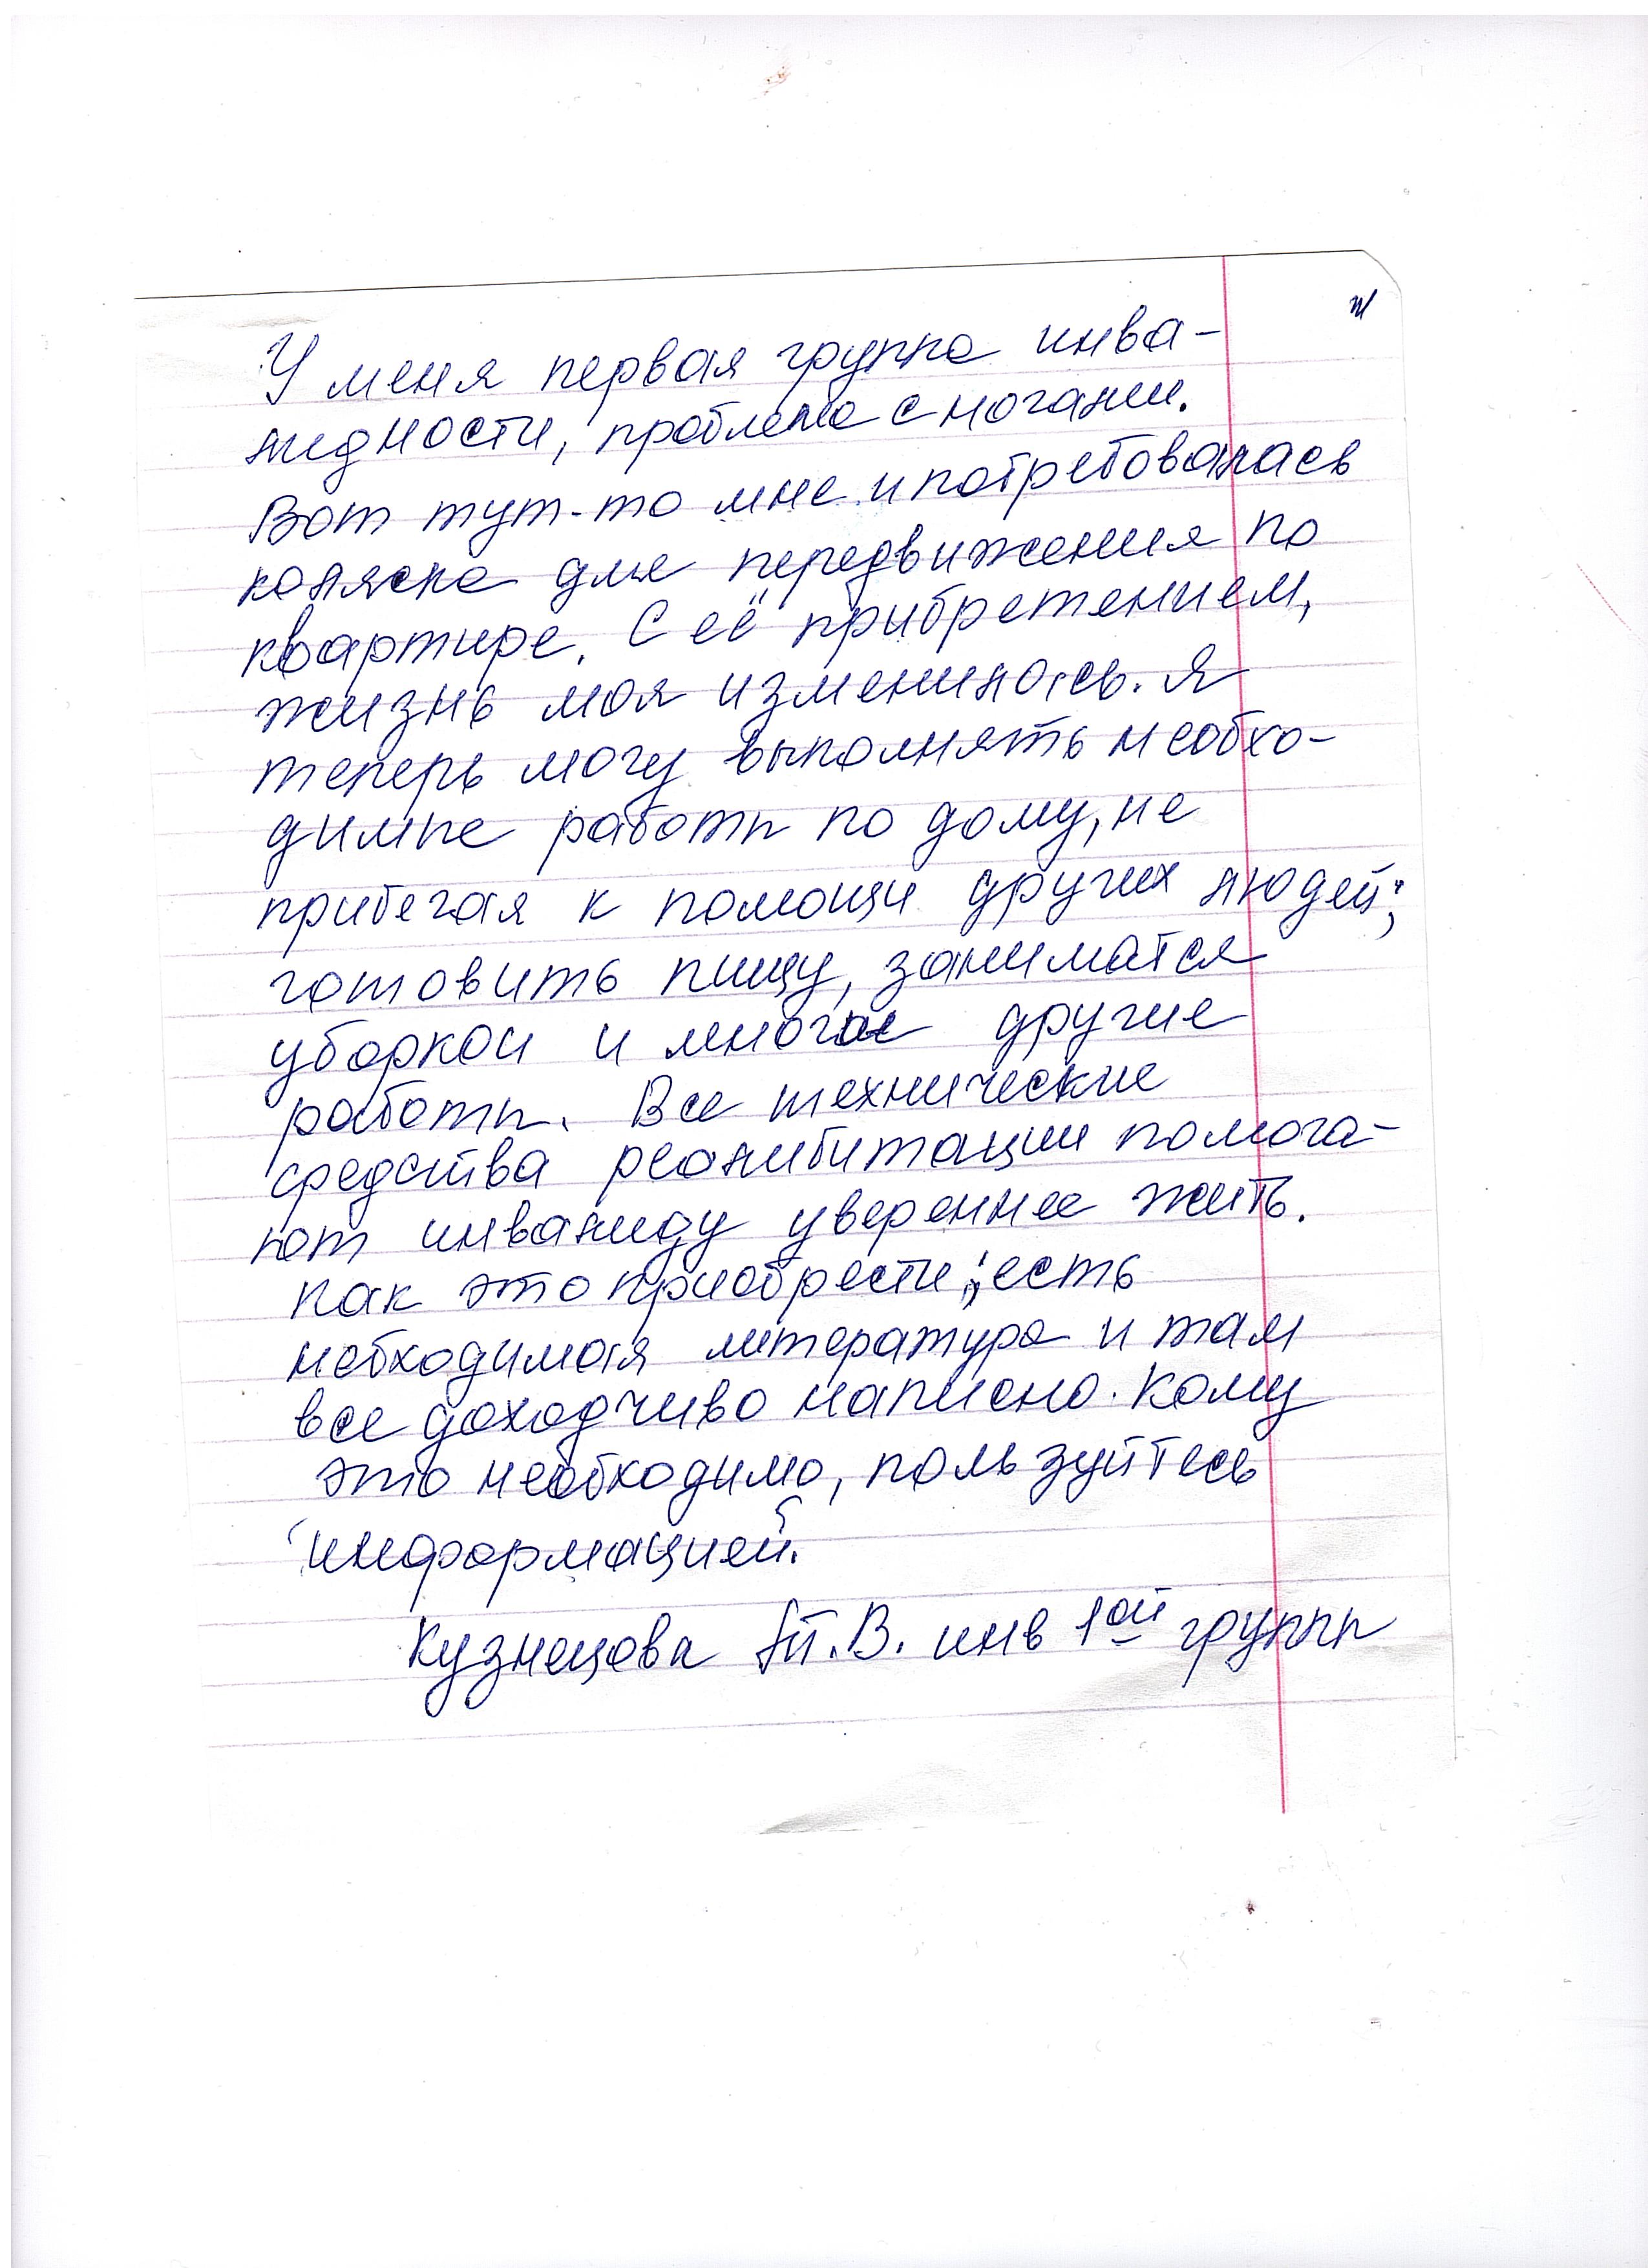 У меня первая группа инва-
лидности, проблема с ногами.
Вот тут-то мне и потребовалась
коляска для передвижения по
квартире. С её прибретением,
жизнь моя изменилась. Я
теперь могу выполнять необхо-
димые работы по дому, не
прибегая к помощи других людей;
готовить пищу, заниматся
уборкой и многие другие
работы. Все технические
средства реалибитации помога-
ют инвалиду увереннее жить.
Как это приобрести; есть
необходимая литература и там
все доходчиво написано. Кому
это необходимо, пользуйтесь
информацией.
Кузнецова В. инв 1ой группы